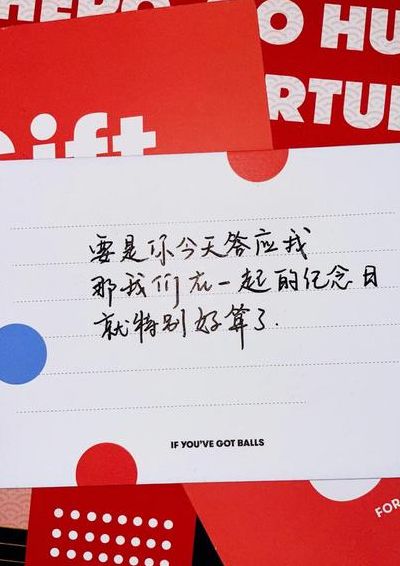 HERO
TO HU
RTU
Gift
要是你今天答应我
那我们在一起的纪念日
就特别好算了.
IF YOU'VE GOT BALLS
FOR